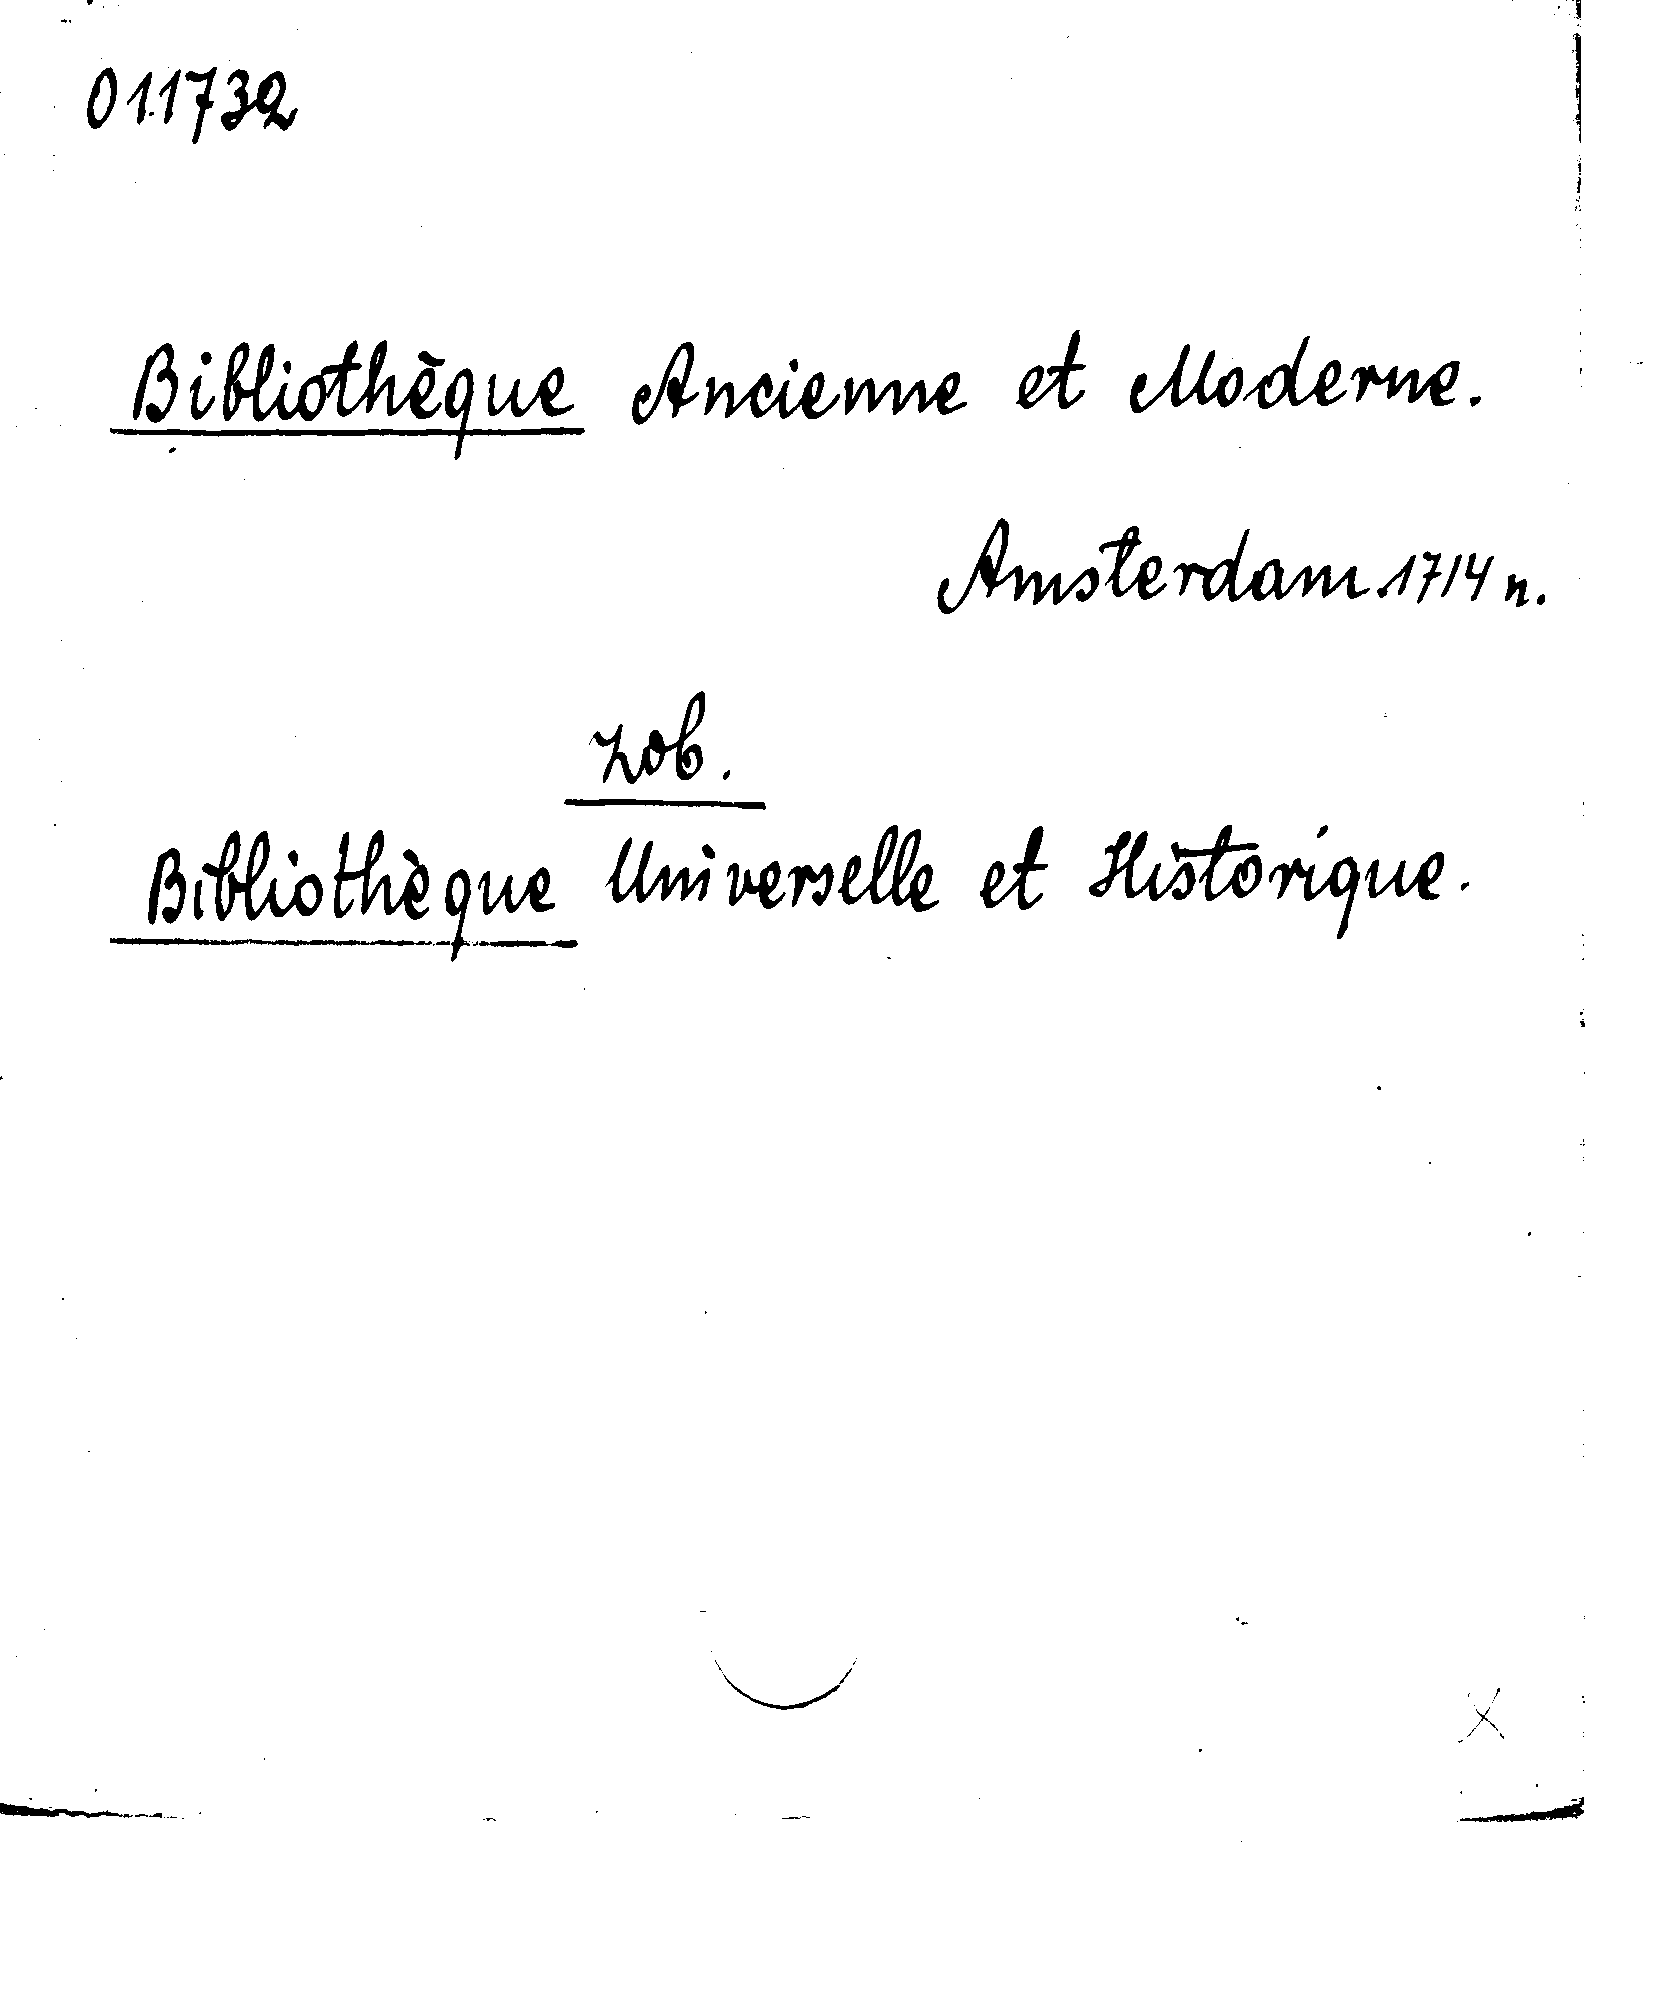 011732
Bibliothèque Ancienne et Moderne.
Amsterdam.1714 n.
zob.
Bibliothèque Universelle et Historique.
X